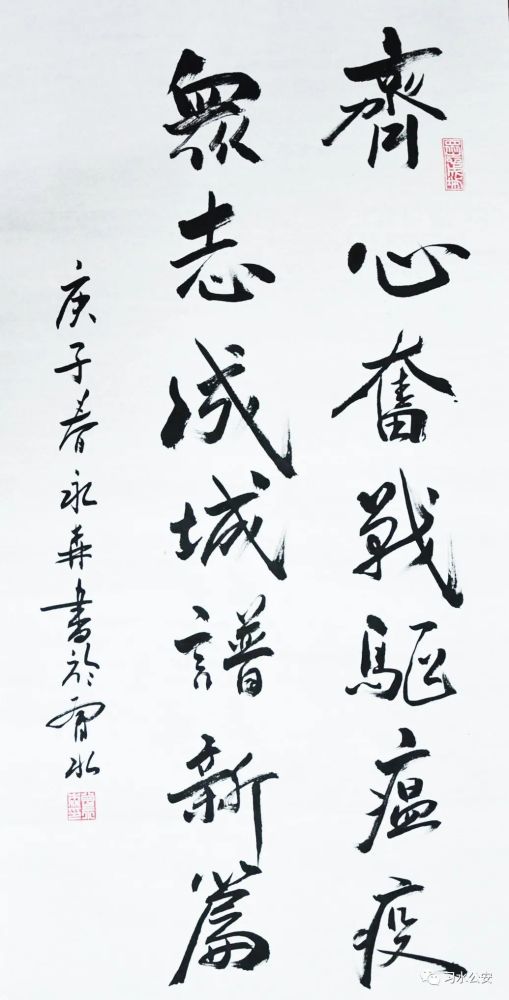 齊心奮戰驅瘟疫
眾志成城譜新篇
庚子春永森書於習水
习水公安